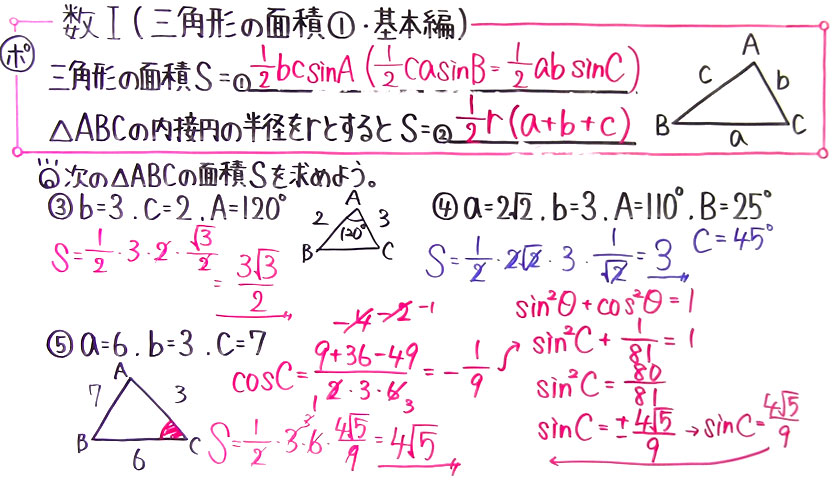 数I(三角形の面積①・基本編)
ポ
三角形の面積S=①1/2bcsinA(1/2casinB=1/2absinC)
△ABCの内接円の半径をrとするとS=②1/2r(a+b+c)
A
c b
B a C
◎次の△ABCの面積Sを求めよう。
③b=3.c=2.A=120°
A
2 3
120°
B C
S=1/2・3・2・√3/2
=3√3/2
④a=2√2.b=3.A=110°.B=25°
C=45°
S=1/2・2√2・3・1/√2=3
⑤a=6.b=3.c=7
A
7 3
B 6 C
-4 -2 -1
cosC=9+36-49/2・3・6=-1/9
1 3
S=1/2・3・6・4√5/9=4√5
sin²θ+cos²θ=1
sin²C+1/81=1
sin²C=80/81
sinC=±4√5/9→sinC=4√5/9